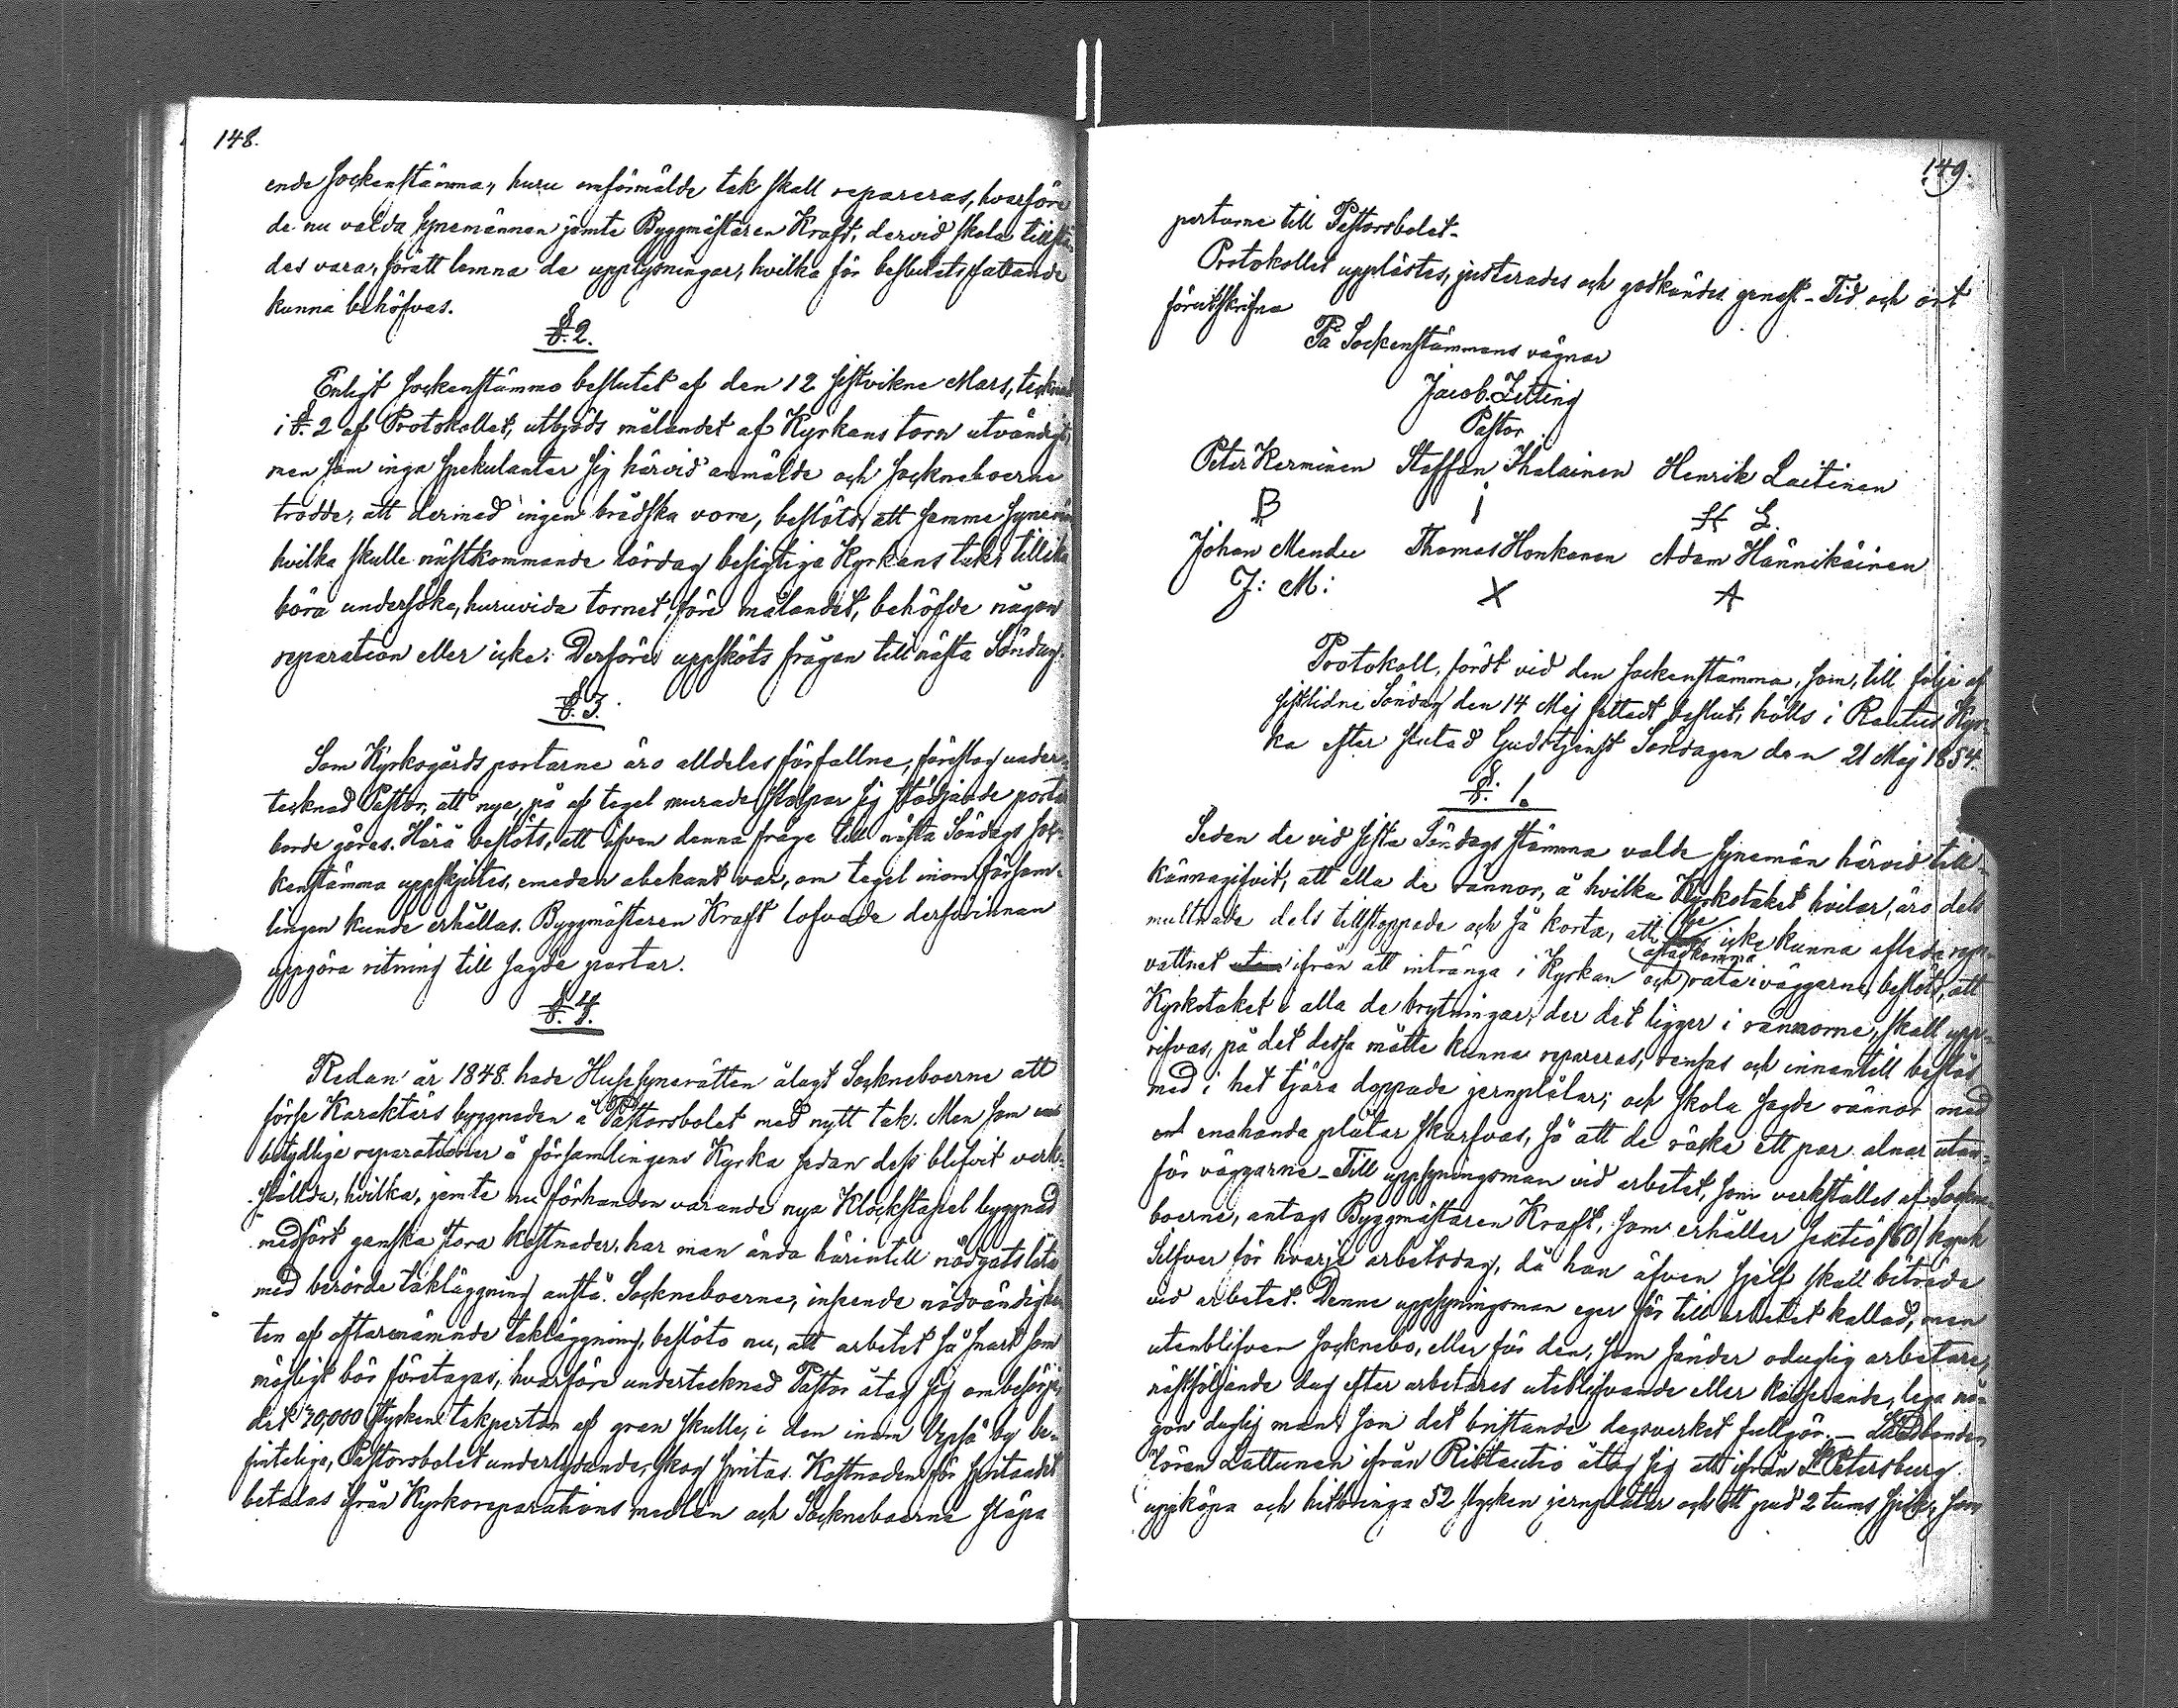 148.
ende Sockenstämma, huru omförmälde tak skall repareras, hvarföre
de nu valda synemännen jämte Byggmästaren Kraft, dervid skola tillstä-
des vara, förätt lemna de upplysningar, hvilka för beslutets fattande
kunna behöfvas.
§. 2.
Enligt Sockenstämmo beslutet af den 12 sistvikne Mars, tecknadt
i §. 2 af Protokollet, utbjöds målandet af Kyrkans torn utvändigt,
men som inga spekulanter sig härvid anmälde och Sockneboerne
trodde, att dermed ingen brådska vore, beslöts, att samme synemän
hvilka skulle nästkommande lördag besigtiga Kyrkans tak, tillika
böra undersöka, huruvida tornet, före målandet, behöfde någon
reparation eller icke. Derföre uppsköts frågan till nästa Söndag.
§. 3.
Som Kyrkogårds portarne äro alldeles förfallne, föreslog under-
tecknad Pastor, att nya, på af tegel murade stolpar sig stödjande portar
borde göras. Härå beslöts, att äfven denna fråga till nästa Söndags Soc-
kenstämma uppskjutes, emedan obekant var, om tegel inom försam-
lingen kunde erhållas. Byggmästaren Kraft lofvade dersvinnan
uppgöra ritning till sagde portar.
§. 4.
Redan år 1848 hade Husesynerätten ålagt Sockneboerne att
förse Karaktärs byggnaden å Pastorsbolet med nytt tak. Men som
betydlige reparationer å församlingens Kyrka sedan dess blifvit verk-
ställda, hvilka, jemte nu förhanden varande nya Klockstapel byggnad
medfört ganska stora kostnader, har man ända härintill nödgats låta
med berörde takläggning anstå. Sockneboerne, inseende nödvändighe-
ten af oftanämnde takläggning, beslöto nu, att arbetet så snart som
möjligt bör företagas, hvarföre undertecknad Pastor åtog sig ombesörja,
det 30,000 stycken takpertor af gran skulle, i den inom by be-
fintelige, Pastorsbolet underlydande, skog spintas. Kostnaden för spintandet
betalas ifrån Kyrkoreparations medlen och Sockneboerne släpa
149.
pertorne till Pastorsbolet.
Protokollet upplästes, justerades och godkändes genast. Tid och ort
förutskrifne
På Sockenstämmans vägnar
Jacob Zitting
Pastor
Peter Kerminen Staffan Ihalainen Henrik Laitinen
B I H L.
Johan Mendu Thomas Honkanen Adam Hännikäinen
J: M: X A
Protokoll, fördt vid den Sockenstämma, som, till följe af
sistlidne Söndag den 14 Maj fattadt beslut, hölls i Rautus Kyr-
ka efter slutad Gudstjenst Söndagen den 21 Maj 1854.
§. 1.
Sedan de vid sista Söndags stämma valde synemän härvid till-
kännagifvit, att alla de rännor, å hvilka Kyrkotaket hvilar, äro dels
multnade dels tillstoppade och så korta, att de icke kunna afleda regn-
vattnet ifrån att intränga i Kyrkan och åstadkomma röta i väggarne, beslöts, att
Kyrkotaket i alla de brytningar, der det ligger i rännorne, skall upp-
rifvas, på det dessa måtte kunna repareras, rensas och innantill beslås
med i het tjära doppade jernplåtar; och skola sagde rännor med
enahanda plåtar skarfvas, så att de räcka ett par alnar utan-
för väggarne. Till uppsyningsman vid arbetet, som verkställes af Sockne-
boerne, antogs Byggmästaren Kraft, som erhåller sextio /60/ kopek
Silfver för hvarje arbetsdag, då han äfven sjelf skall biträda
vid arbetet. Denne uppsyningsman eger för till arbetet kallad, men
utenblifven socknebo, eller för den, som sänder oduglig arbetare,
nästföljande dag efter arbetares uteblifvande eller kasserande, lega nå-
gon duglig man, som det bristande dagsverket fullgör. — Landbonden
Sören Lattunen ifrån Ristautio åtog sig att ifrån S:t Petersburg
uppköpa och hitbringa 52 stycken jernplåtar och ett pud 2 tums spik, som